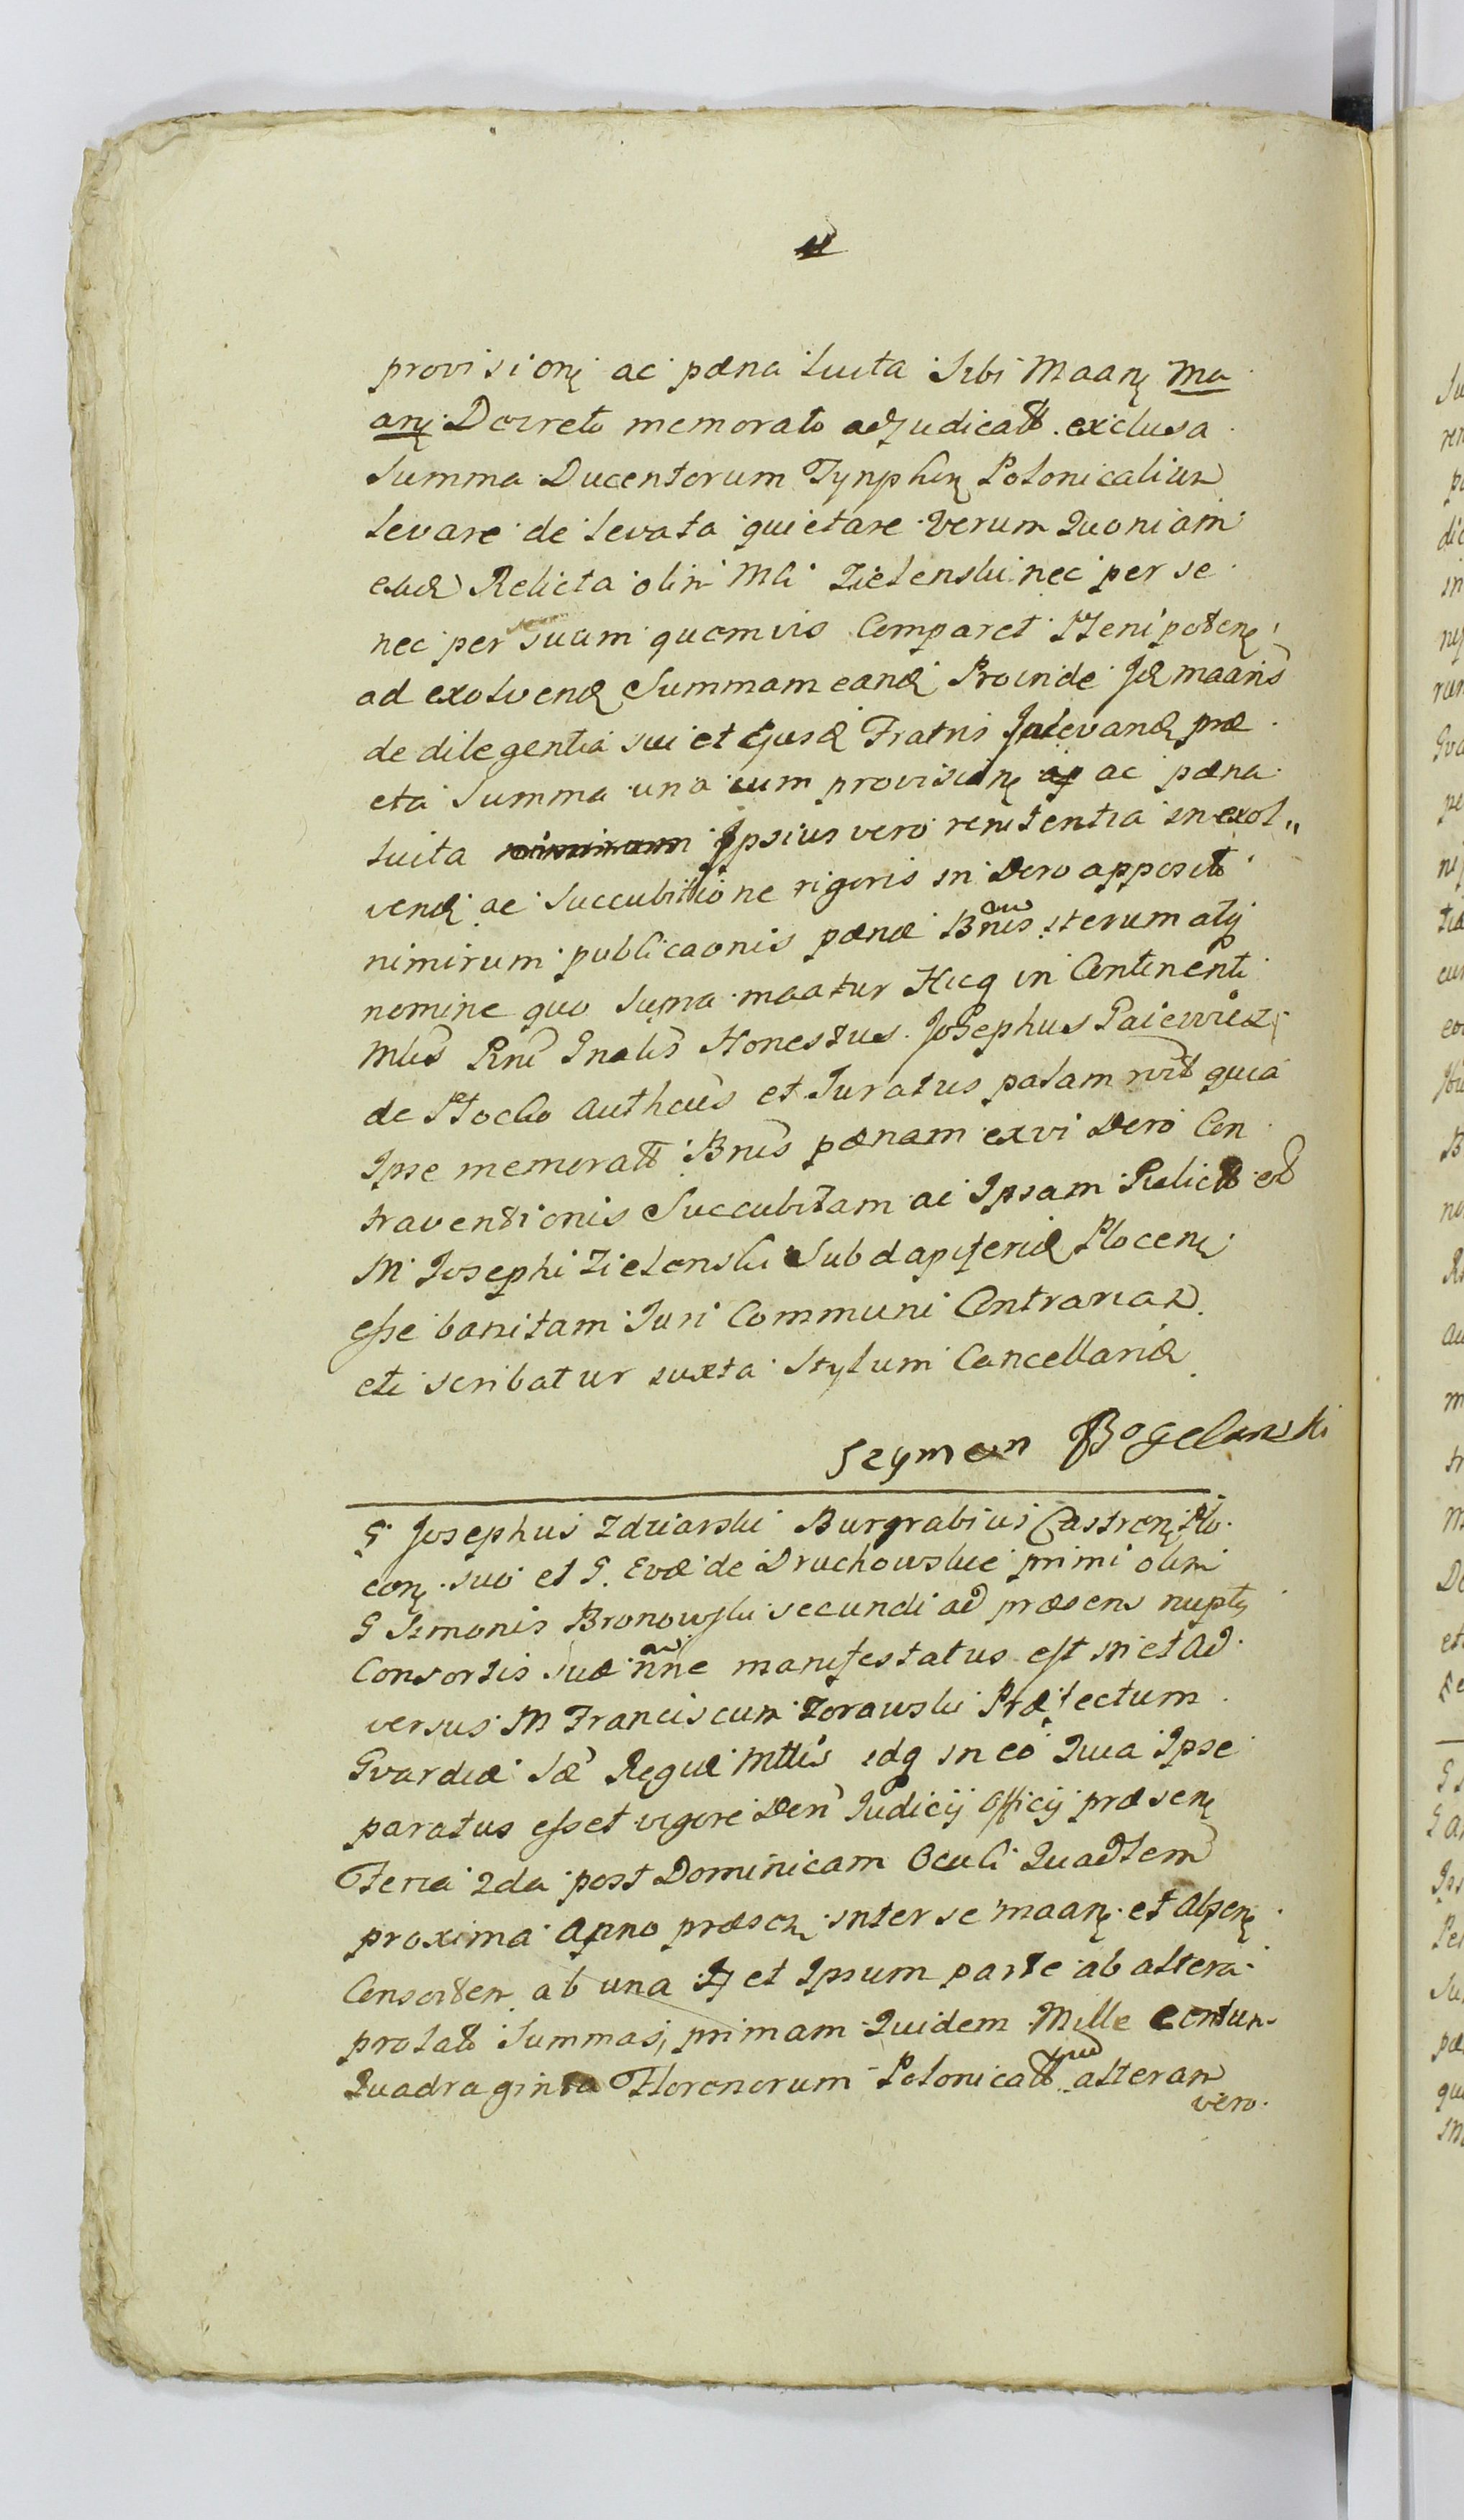 provisionę ac pœna luita sibi Maanę Ma
anę Decreto memorato adjudicatt exclusa
Summa Ducentorum Tynphorę Polonicalium
levare de levata quietare Verum Quoniam
ead Relicta olim Mci Zielenski nec per se
nec per suum quamvis Comparet Plenipotenę
ad exolvend Summam eand Proinde Jd maans
de diligentia sui et Ejusd Fratris Jn levand præ
cta Summa una cum provisionę ac pœna
luita Jpsius vero renitentia in exol„
vend ac Succubitione rigoris in Dero apposito
nimirum publicaonis pœnæ Bnis iterum atq
nomine quo supra maatur Hicq in Continenti
Mlis Rni Gnalis Honestus Josephus Gaiewicz
de Plocko Authcus et Juratus palam rvit quia
Ipse memoratt Bnis pœnam ex vi Deri Con
traventionis Succubitam ac Ipsam Relict ol
M Josephi Zielenski Subdapiferid Plocenę
esse banitam Juri Communi Contrariam
etc scribatur iuxta Stylum Cancellariæ
Szymon Bogelanski
G Josephus Zdziarski Burgrabius Castrenę Plo
cenę suo et G. Evæ de Druchowskie primi olim
G Simonis Bronowski secundi ad præsens nuptę
Consortis suæ nne manifestatus est in et ad
versus M Franciscum Zorawski Præfectum
Gvardiæ Sæ Regiæ Mttis idq in eo Quia Ipse
paratus esset vigore Deri Judicij Officij præsenę
Feria 2da post Dominicam Oculi Quadlem
proxima Anno præsenę inter se maanę et absenę
Consortem ab una et Ipsum parte ab altera
prolato Summas, primam Quidem Mille Centum
Quadraginta Florenorum Polonicatt alteram
vero.